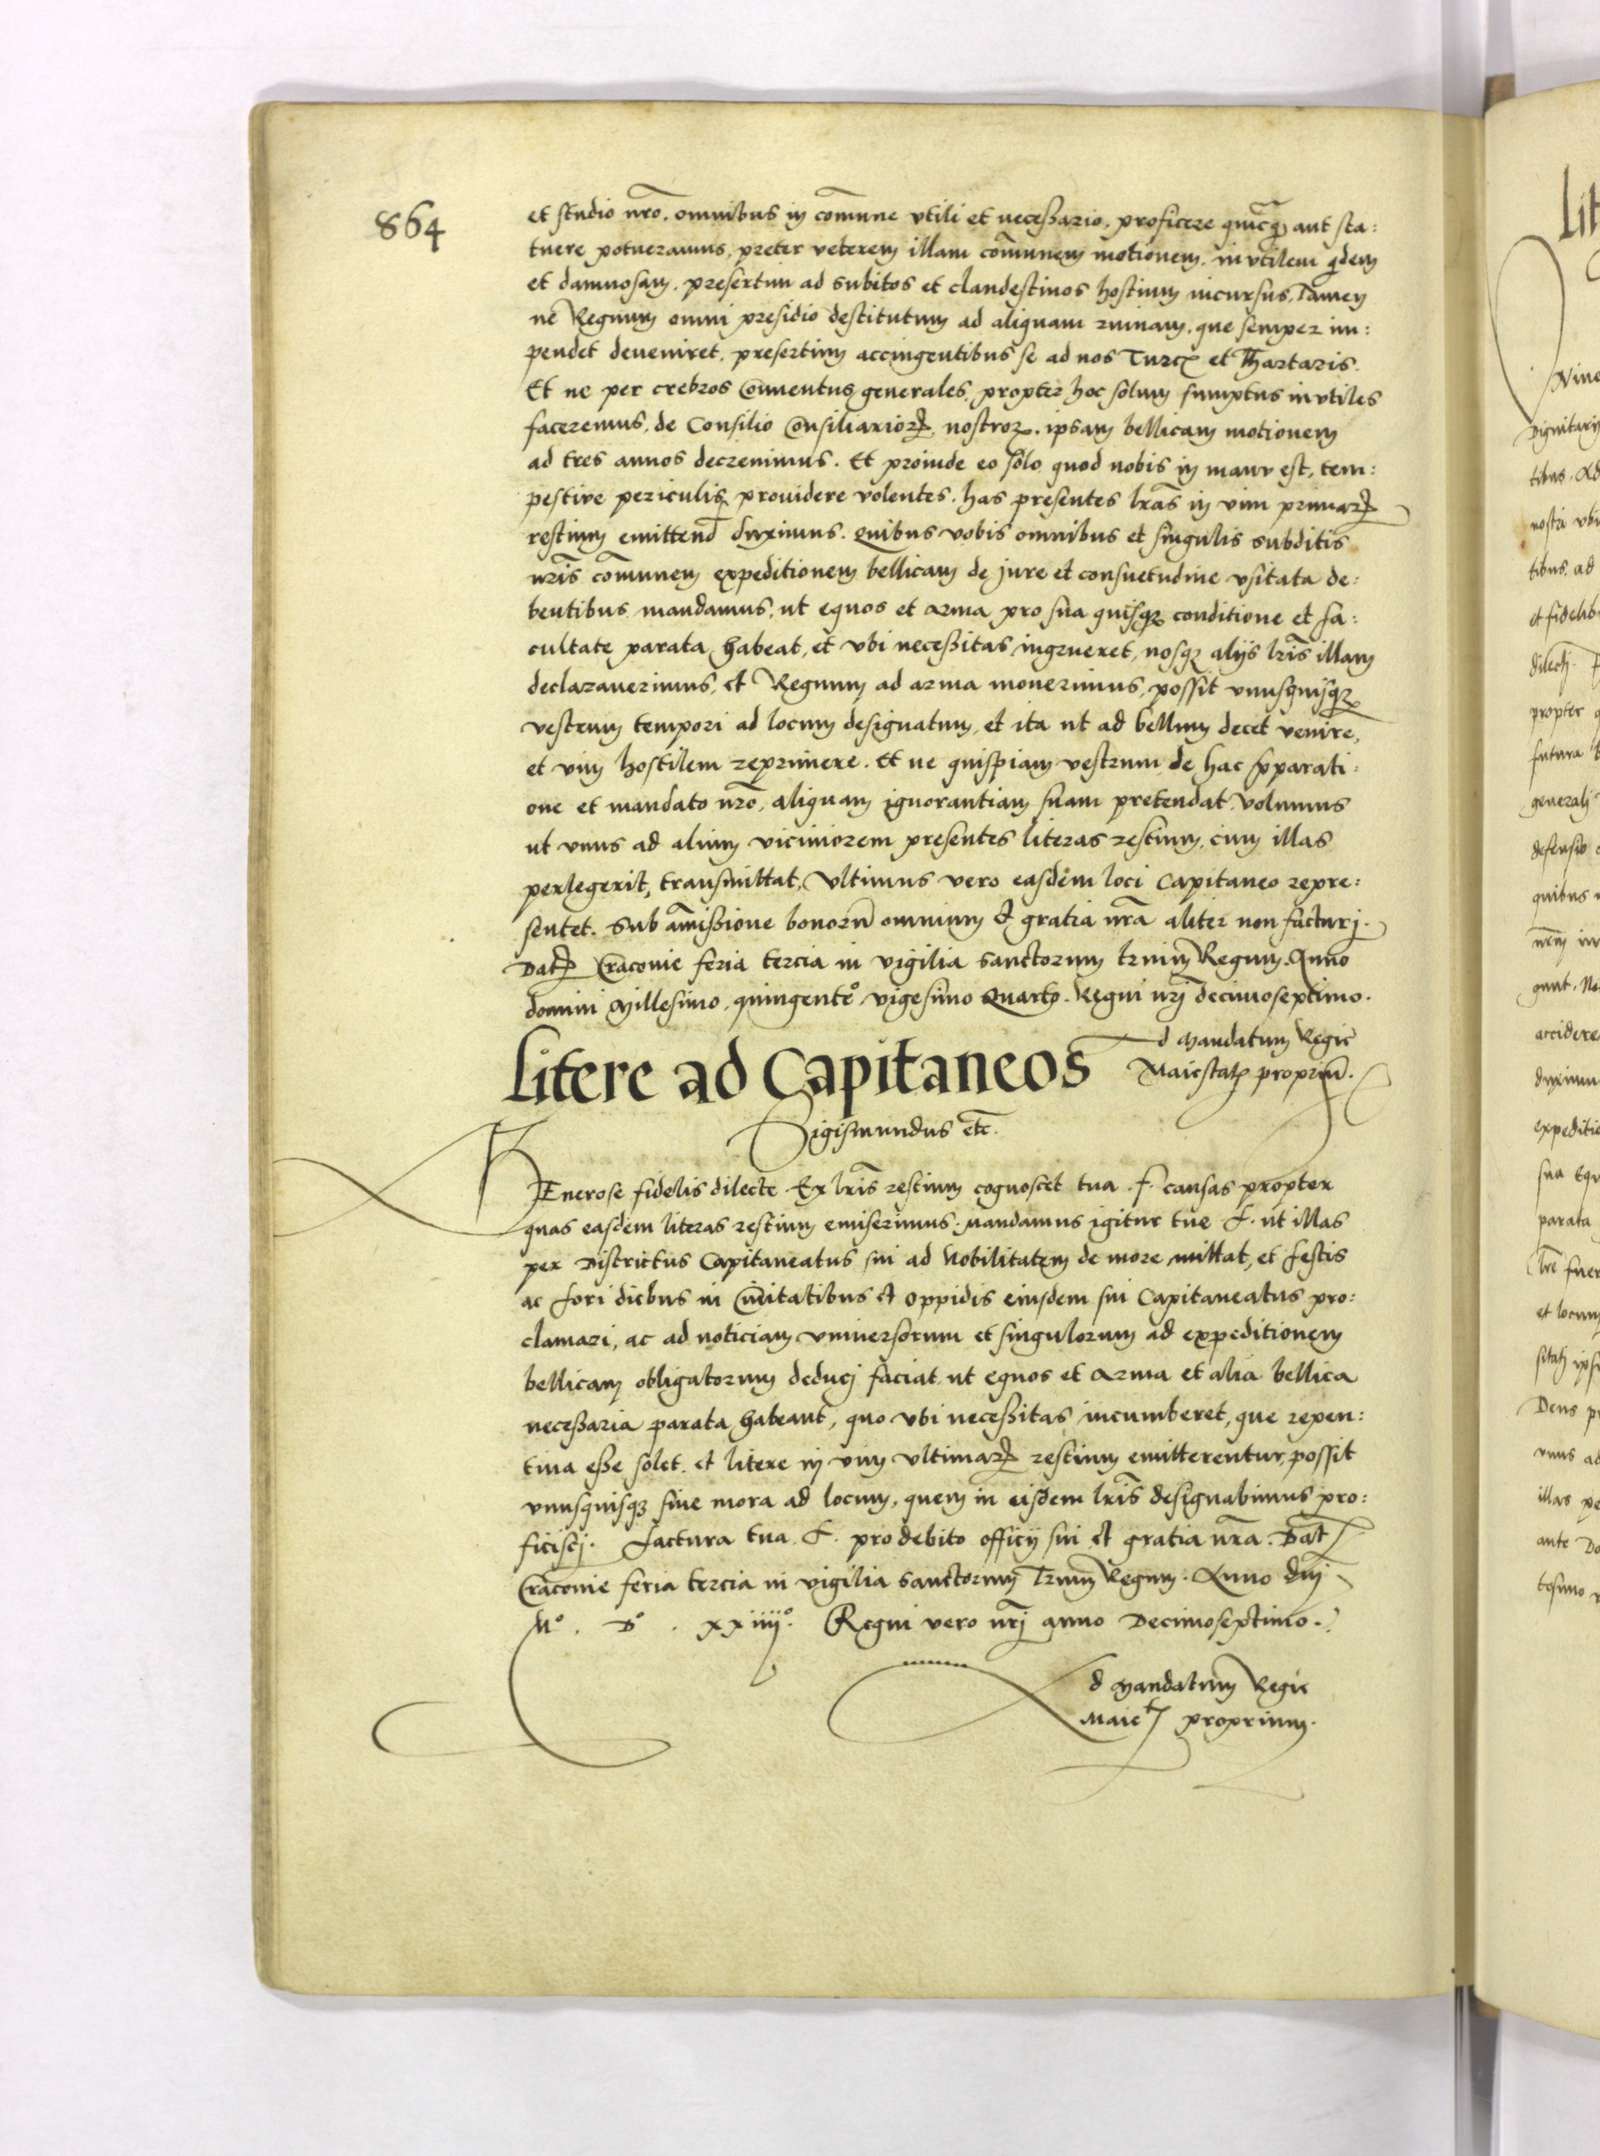 864
et studio nr̄o. omnibus in com̄une vtili et necessario, proficere quicq̄ȝ aut sta:
tuere potueramus, preter veterem illam com̄unem motionem. invtilem q̇dem
et damnosam, presertim ad subitos et clandestinos hostium incursus, Tamen
ne Regnum omni presidio destitutum ad aliquam ruinam, que semper im:
pendet deveniret, presertim accingentibus se ad nos Turcꝭ et Thartaris.
Et ne per crebros Conventus generales, propter hoc solum sumptus invtiles
faceremus, de Consilio Consiliarioꝝ nostroꝝ. ipsam bellicam motionem
ad tres annos decrevimus. Et proinde eo solo quod nobis in manu est, tem:
pestive periculis providere volentes. has presentes lr̄as in vim primaꝝ
restium emittend̄ duximus. Quibus vobis omnibus et singulis subditis
nr̄is com̄unem expeditionem bellicam de jure et consuetudine vsitata de:
bentibus mandamus, ut equos et arma pro sua quisqȝ conditione et fa:
cultate parata habeat, et vbi necessitas ingrueret, nosqȝ alijs lr̄is illam
declaraverimus, et Regnum ad arma moverimus, possit vnusquisqȝ
vestrum tempori ad locum designatum, et ita ut ad bellum decet venire,
et vim hostilem reprimere. Et ne quispiam vestrum de hac p̄parati:
one et mandato nr̄o, aliquam ignorantiam suam pretendat, volumus
ut vnus ad alium viciniorem presentes literas restium, cum illas
perlegerit, transmittat, Vltimus vero easdem loci Capitaneo repre:
sentet. Sub am̄issione bonorū omnium et gratia nr̄a aliter non facturj.
Datꝭ Cracovie feria tercia in vigilia sanctorum trium Regum. Anno
domini Millesimo, quingentᵒ vigesimo Quarto. Regni nr̄j decimoseptimo.
d Mandatum Regie
Maiestatꝭ propriū.
Litere ad Capitaneos
Sigismundus etc̄.
GEnerose fidelis dilecte. Ex lr̄is restium cognoscet tua .f. causas propter
quas easdem literas restium emiserimus. Mandamus igitur tue f. ut illas
per Districtus Capitaneatus sui ad Nobilitatem de more mittat, et festis
ac fori diebus in Civitatibus et oppidis eiusdem sui Capitaneatus pro:
clamari, ac ad noticiam vniversorum et singulorum ad expeditionem
bellicam obligatorum deducj faciat ut equos et Arma et alia bellica
necessaria parata habeant, quo vbi necessitas incumberet, que repen:
tina esse solet, et litere in vim vltimaꝝ restium emitterentur, possit
vnusquisqȝ sine mora ad locum, quem in eisdem lr̄is designabimus pro:
ficiscj. Factura tua f. pro debito officij sui et gratia nr̄a. Datꝭ
Cracovie feria tercia in vigilia sanctorum Trium Regum. Anno dn̄j
Mᵒ. Dᵒ. xxiiijᵒ. Regni vero nr̄j anno Decimoseptimo.
d Mandatum Regie
Maiettꝭ proprium.